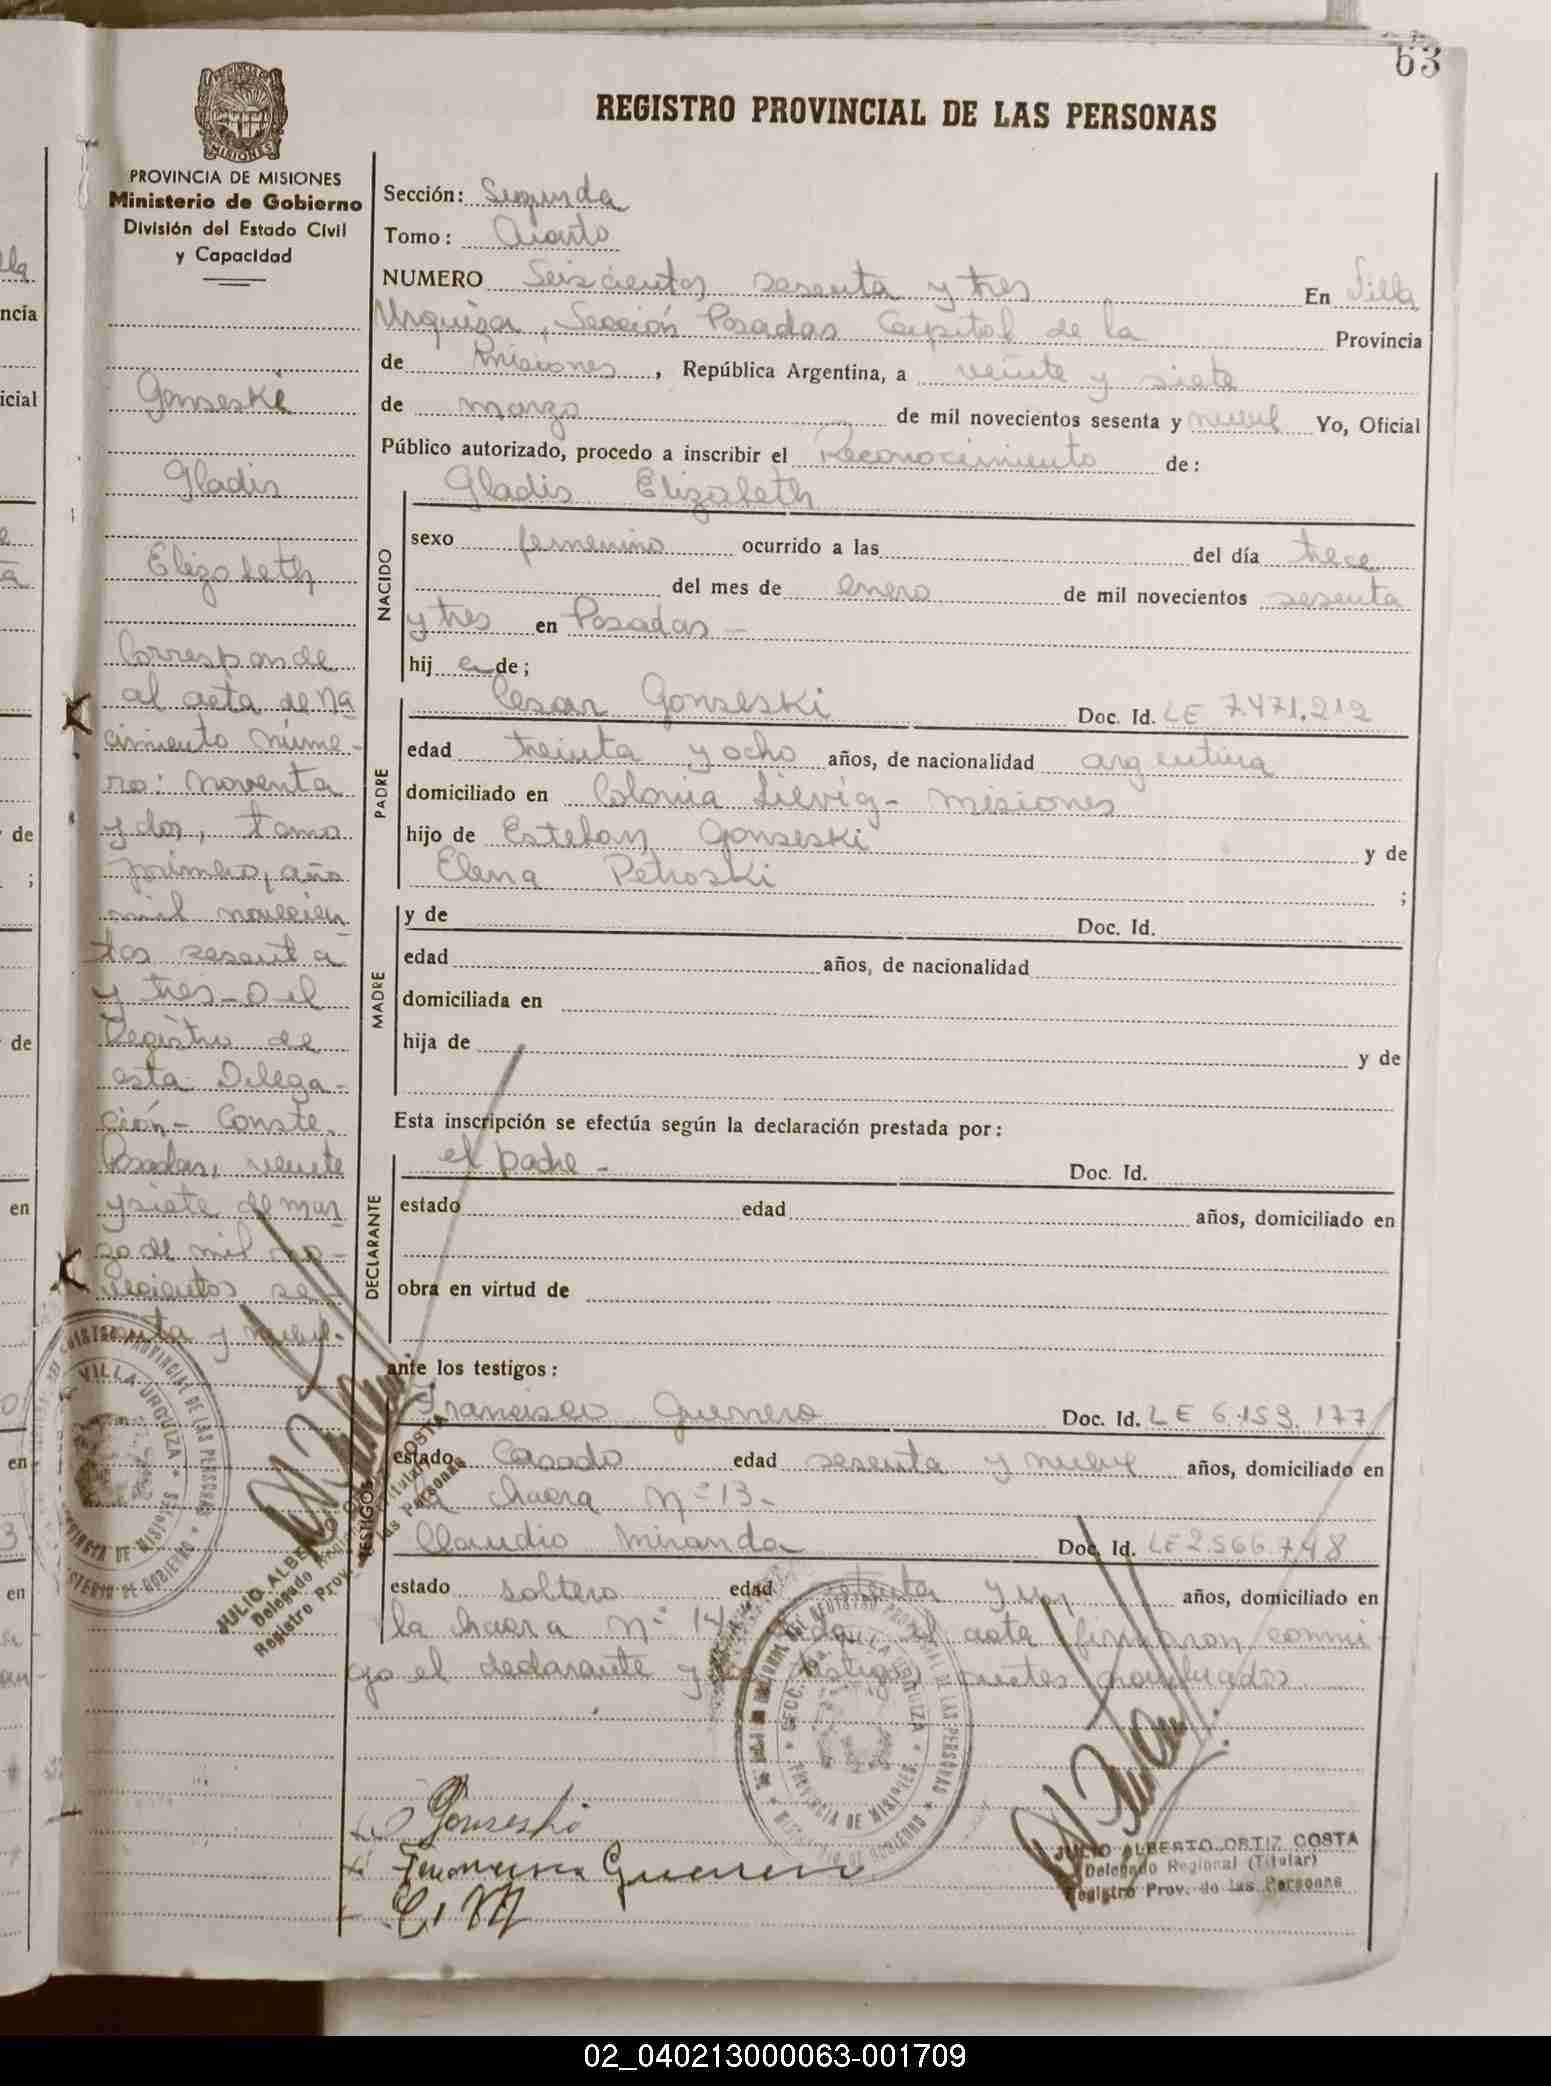 63
REGISTRO PROVINCIAL DE LAS PERSONAS
PROVINCIA DE MISIONES
Ministerio de Gobierno
División del Estado Civil
y Capacidad
Gonseski
Gladis
Elizabeth
Corresponde
al acta de na
cimiento núme-
ro: noventa
y dos, tomo
primero, año
mil novecien
tos sesenta
y tres - D el
Registro de
esta Delega-
ción - Conste.
Posadas, veinte
y siete de mar
zo de mil no-
vecientos se-
senta y nueve.
Sección: Segunda
Tomo: Cuarto
NUMERO Seiscientos sesenta y tres En Villa
Urquiza, Sección Posadas Capital de la Provincia
de Misiones, República Argentina, a veinte y siete
de marzo de mil novecientos sesenta y nueve Yo, Oficial
Público autorizado, procedo a inscribir el Reconocimiento de:
Gladis Elizabeth
NACIDO
sexo femenino ocurrido a las del día trece
del mes de enero de mil novecientos sesenta
y tres en Posadas -
hij a de;
PADRE
Cesar Gonseski Doc. Id. LE 7.471.212
edad treinta y ocho años, de nacionalidad argentina
domiciliado en Colonia Lievig - Misiones
hijo de Esteban Gonseski y de
Elena Petroski ;
MADRE
y de Doc. Id.
edad años, de nacionalidad
domiciliada en
hija de y de
Esta inscripción se efectúa según la declaración prestada por:
DECLARANTE
el padre - Doc. Id.
estado edad años, domiciliado en
obra en virtud de
ante los testigos:
TESTIGOS
Francisco Guerrero Doc. Id. LE 6.153.177
estado Casado edad sesenta y nueve años, domiciliado en
chacra Nº 13-
Claudio Miranda Doc. Id. LE 2.566.748
estado soltero edad setenta y un años, domiciliado en
la chacra Nº 14 el acta firmaron conmi-
go el declarante y los testigos antes nombrados
Gonseski
Francisco Guerrero
C. M
JULIO ALBERTO ORTIZ COSTA
Delegado Regional (Titular)
Registro Prov. de las Personas
VILLA URQUIZA
PROVINCIA DE MISIONES
MINISTERIO DE GOBIERNO
02_040213000063-001709